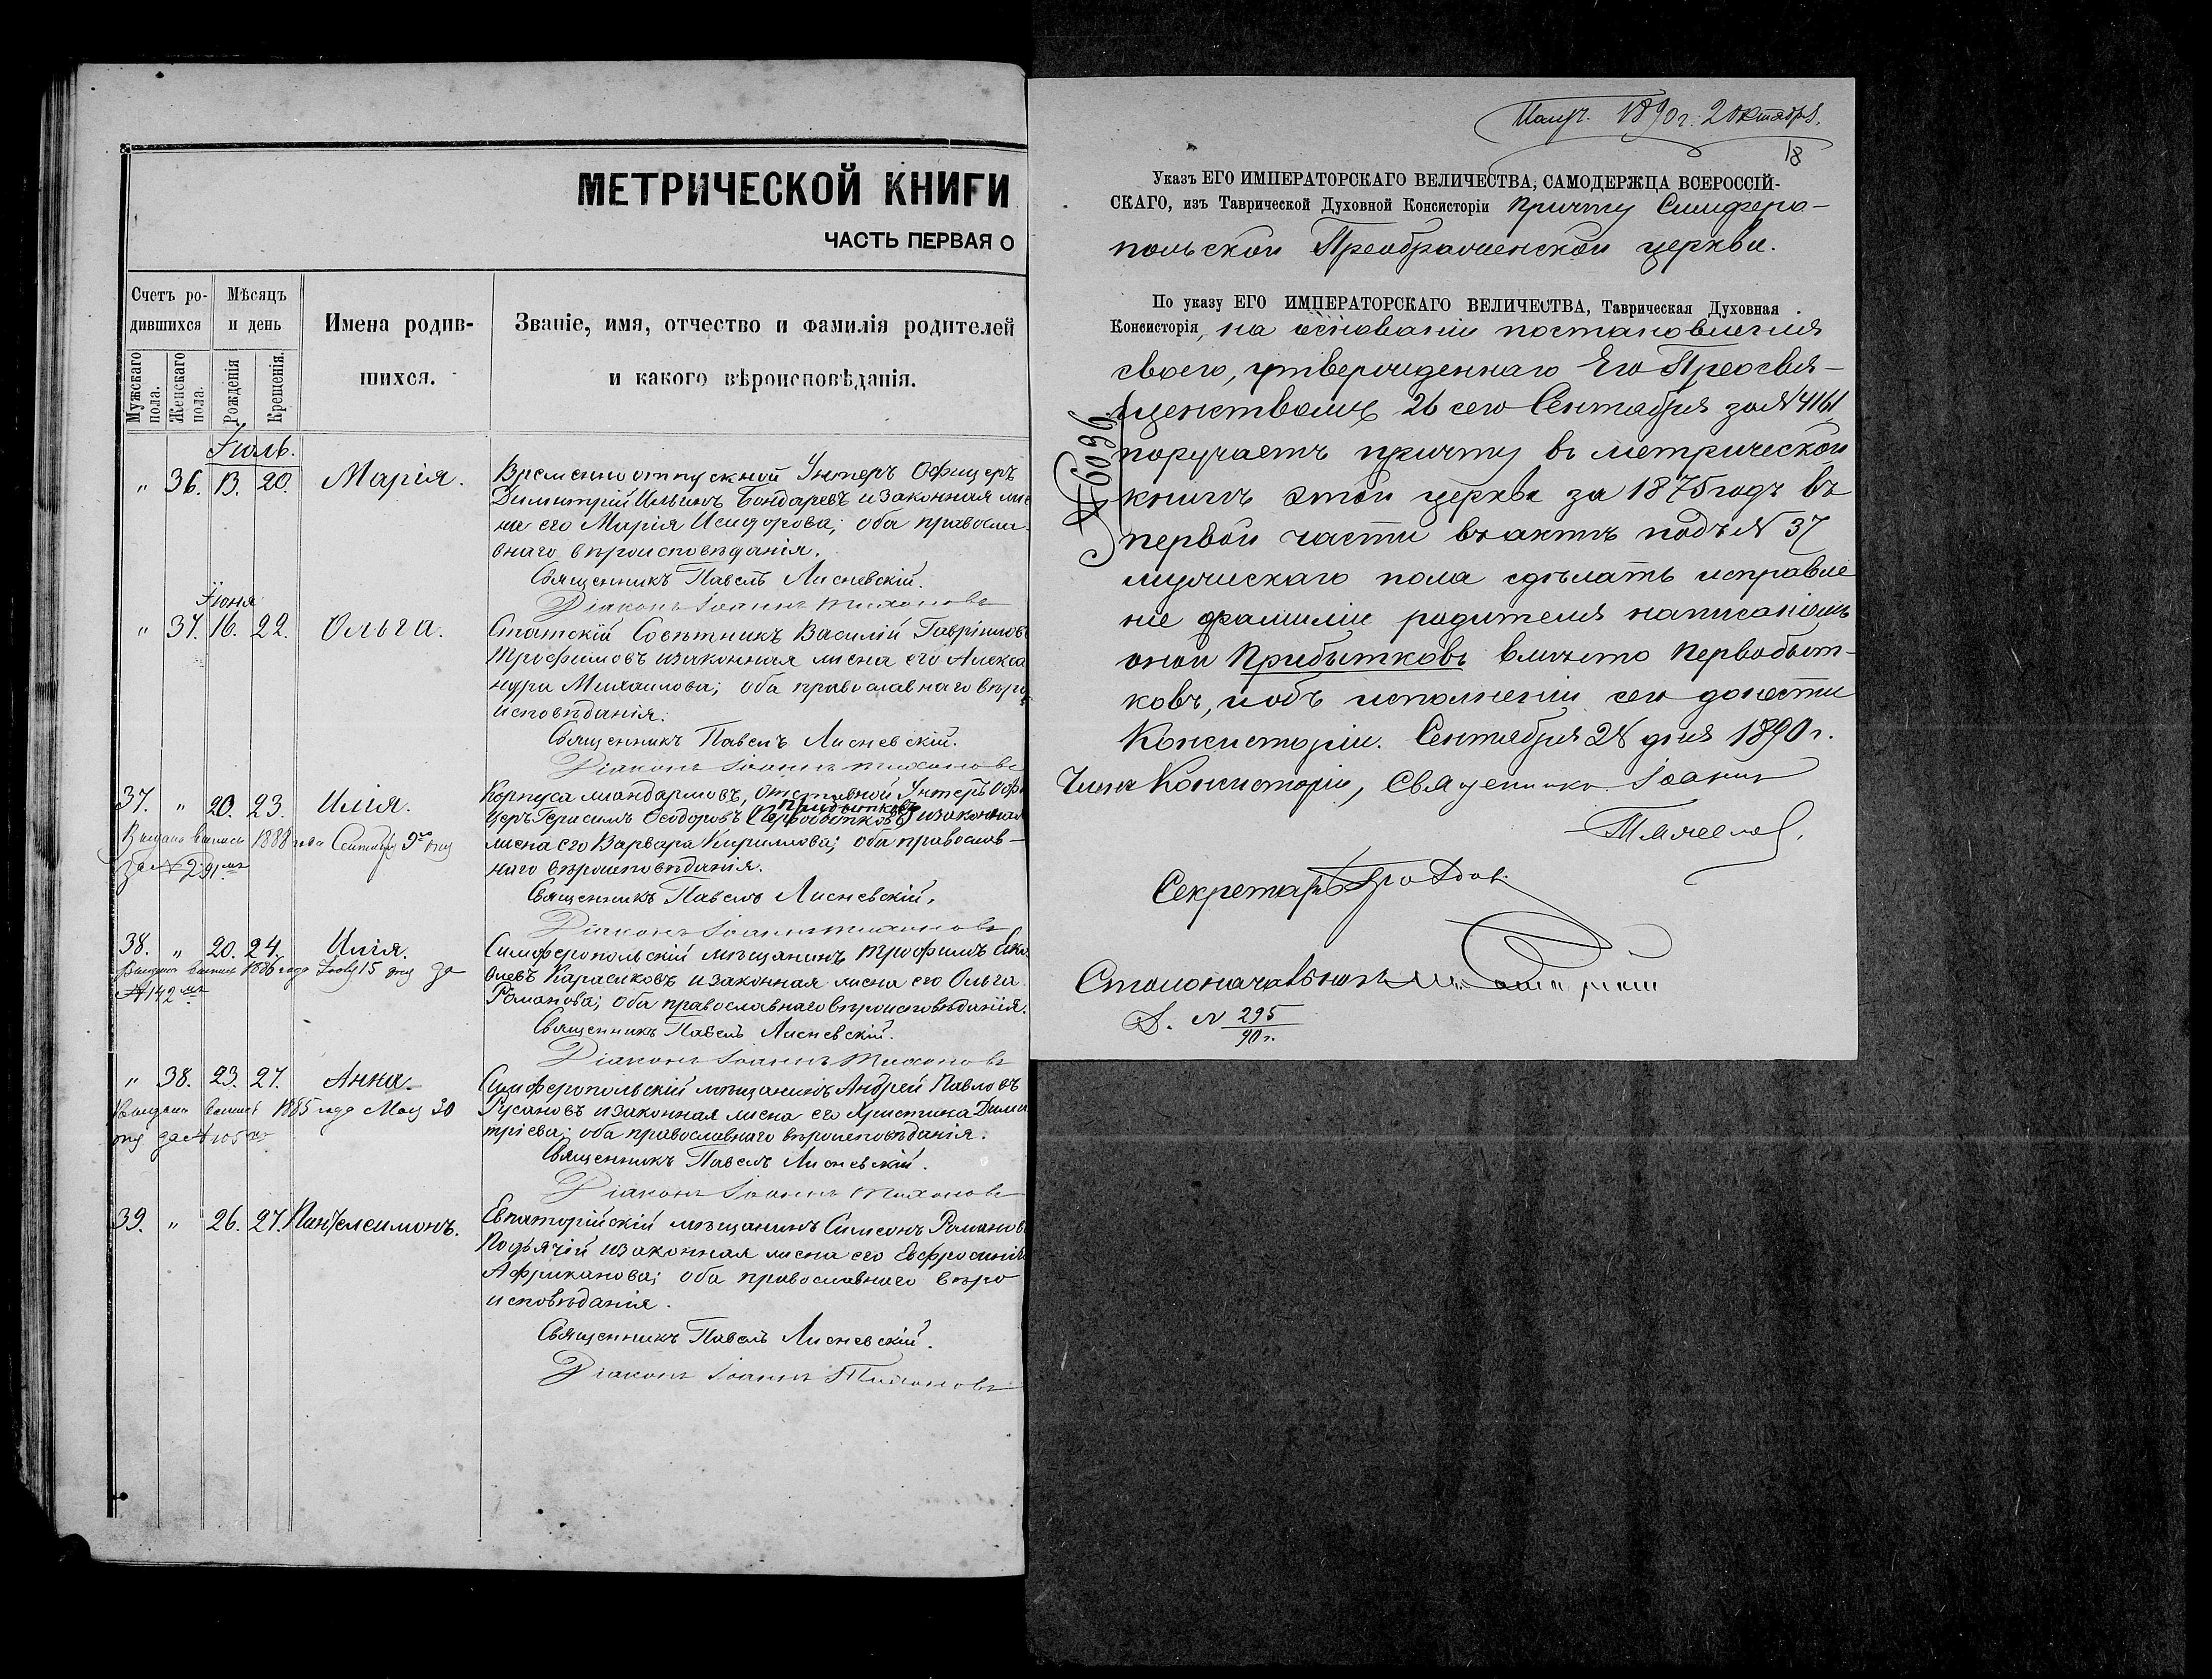 МЕТРИЧЕСКОЙ КНИГИ
ЧАСТЬ ПЕРВАЯ О
Счетъ ро-
дившихся
Мужскаго пола.
Женскаго пола.
Мѣсяцъ
и день
Рожденія
Крещенія.
Имена родив-
шихся.
Званіе, имя, отчество и фамилія родителей
и какого вѣроисповѣданія.
Іюль.
" 36. 13. 20. Марія.
Временно отпускной Унтеръ Офицеръ
Димитрій Ильинъ Бондаревъ и законная же
на его Марія Исидорова; оба православ
внаго вѣроисповѣданія.
Священникъ Павелъ Лисневскій.
Діаконъ Іоаннъ Тихоновъ
Іюня
" 37. 16. 22. Ольга.
Статскій Совѣтникъ Василій Гавріиловъ
Трофимовъ и законная жена его Алекса
ндра Михаилова; оба православнаго вѣро
исповѣданія.
Священникъ Павелъ Лисневскій.
Діаконъ Іоаннъ Тихоновъ
37. " 20. 23. Илія.
Выдана выпись 1888 года Сентября 9го дня
за № 291мъ
Корпуса жандармовъ, отставной Унтеръ Офи
Прибытковъ
церъ Герасимъ Ѳеодоровъ (Первобытковъ) и законная
жена его Варвара Кириллова; оба православ-
наго вѣроисповѣданія.
Священникъ Павелъ Лисневскій.
Діаконъ Іоаннъ Тихоновъ
38. " 20. 24. Илія.
Выдана выпись 1886 года Іюля 15 дня за
№ 142мъ
Симферопольскій мѣщанинъ Трофимъ Яко
влевъ Карасиковъ и законная жена его Ольга
Романова; оба православнаго вѣроисповѣданія.
Священникъ Павелъ Лисневскій.
Діаконъ Іоаннъ Тихоновъ
" 38. 23. 27. Анна.
Выдана выпись 1885 года Мая 30
дня за № 105мъ
Симферопольскій мѣщанинъ Андрей Павловъ
Русановъ и законная жена его Христина Дими
тріева; оба православнаго вѣроисповѣданія.
Священникъ Павелъ Лисневскій.
Діаконъ Іоаннъ Тихоновъ
39. " 26. 27. Пантелеимонъ.
Евпаторійскій мѣщанинъ Симеонъ Романовъ
Подьячій и законная жена его Евфросинія
Африканова; оба православнаго вѣро
исповѣданія.
Священникъ Павелъ Лисневскій.
Діаконъ Іоаннъ Тихоновъ
Получ. 1890 г. 2 Октября.
18
Указъ ЕГО ИМПЕРАТОРСКАГО ВЕЛИЧЕСТВА, САМОДЕРЖЦА ВСЕРОССІЙ-
СКАГО, изъ Таврической Духовной Консисторіи причту Симферо-
польской Преображенской церкви.
По указу ЕГО ИМПЕРАТОРСКАГО ВЕЛИЧЕСТВА, Таврическая Духовная
Консисторія, на основаніи постановленія
своего, утвержденнаго Его Преосвя-
щенствомъ 26 сего Сентября за № 4161
поручаетъ причту въ метрической
книгѣ этой церкви за 1875 годъ въ
первой части въ актѣ подъ № 37
мужскаго пола сдѣлать исправле
ніе фамиліи родителя написаніемъ
оной Прибытковъ вмѣсто Первобыт-
ковъ, и объ исполненіи сего донести
Консисторіи. Сентября 28 дня 1890 г.
№ 6036
Членъ Консисторіи, Священникъ Іоаннъ
Секретарь
Столоначальникъ
Д. № 295
90 г.